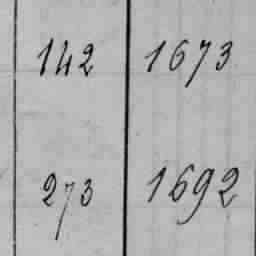 142 1673
273 1692